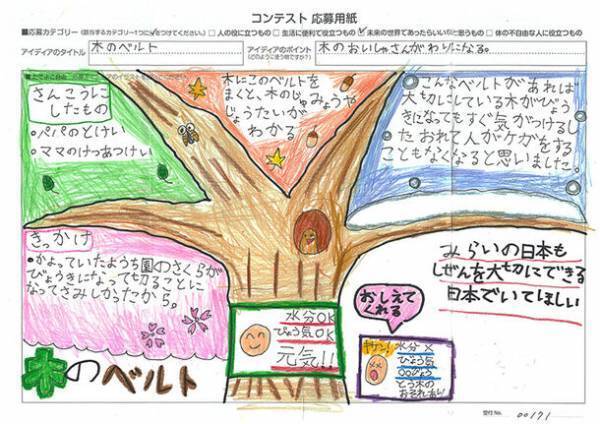 コンテスト 応募用紙
■応募カテゴリー
□人の役に立つもの □生活に便利で役立つもの ☑未来の世界であったらいいなと思うもの □体の不自由な人に役立つもの
アイディアのタイトル
木のベルト
アイディアのポイント
木のおいしゃさんがわりになる。
さんこうに
したもの
・パパのとけい
・ママのけつあつけい
木にこのベルトを
まくと、木のじゅみょうや
じょうたいが
わかる
こんなベルトがあれば
大切にしている木がびょう
きになってもすぐ気がつけるし
たおれて人がケガをする
こともなくなると思いました。
きっかけ
・かよっていたようち園のさくらが
びょうきになっても切ることに
なってさみしかったから。
みらいの日本も
しぜんを大切にできる
日本でいてほしい
おしえて
くれる
水分OK
びょう気OK
元気!!
水分×
びょう気
○○びょう
とう木の
おそれあり!
木のベルト
受付No.
00171